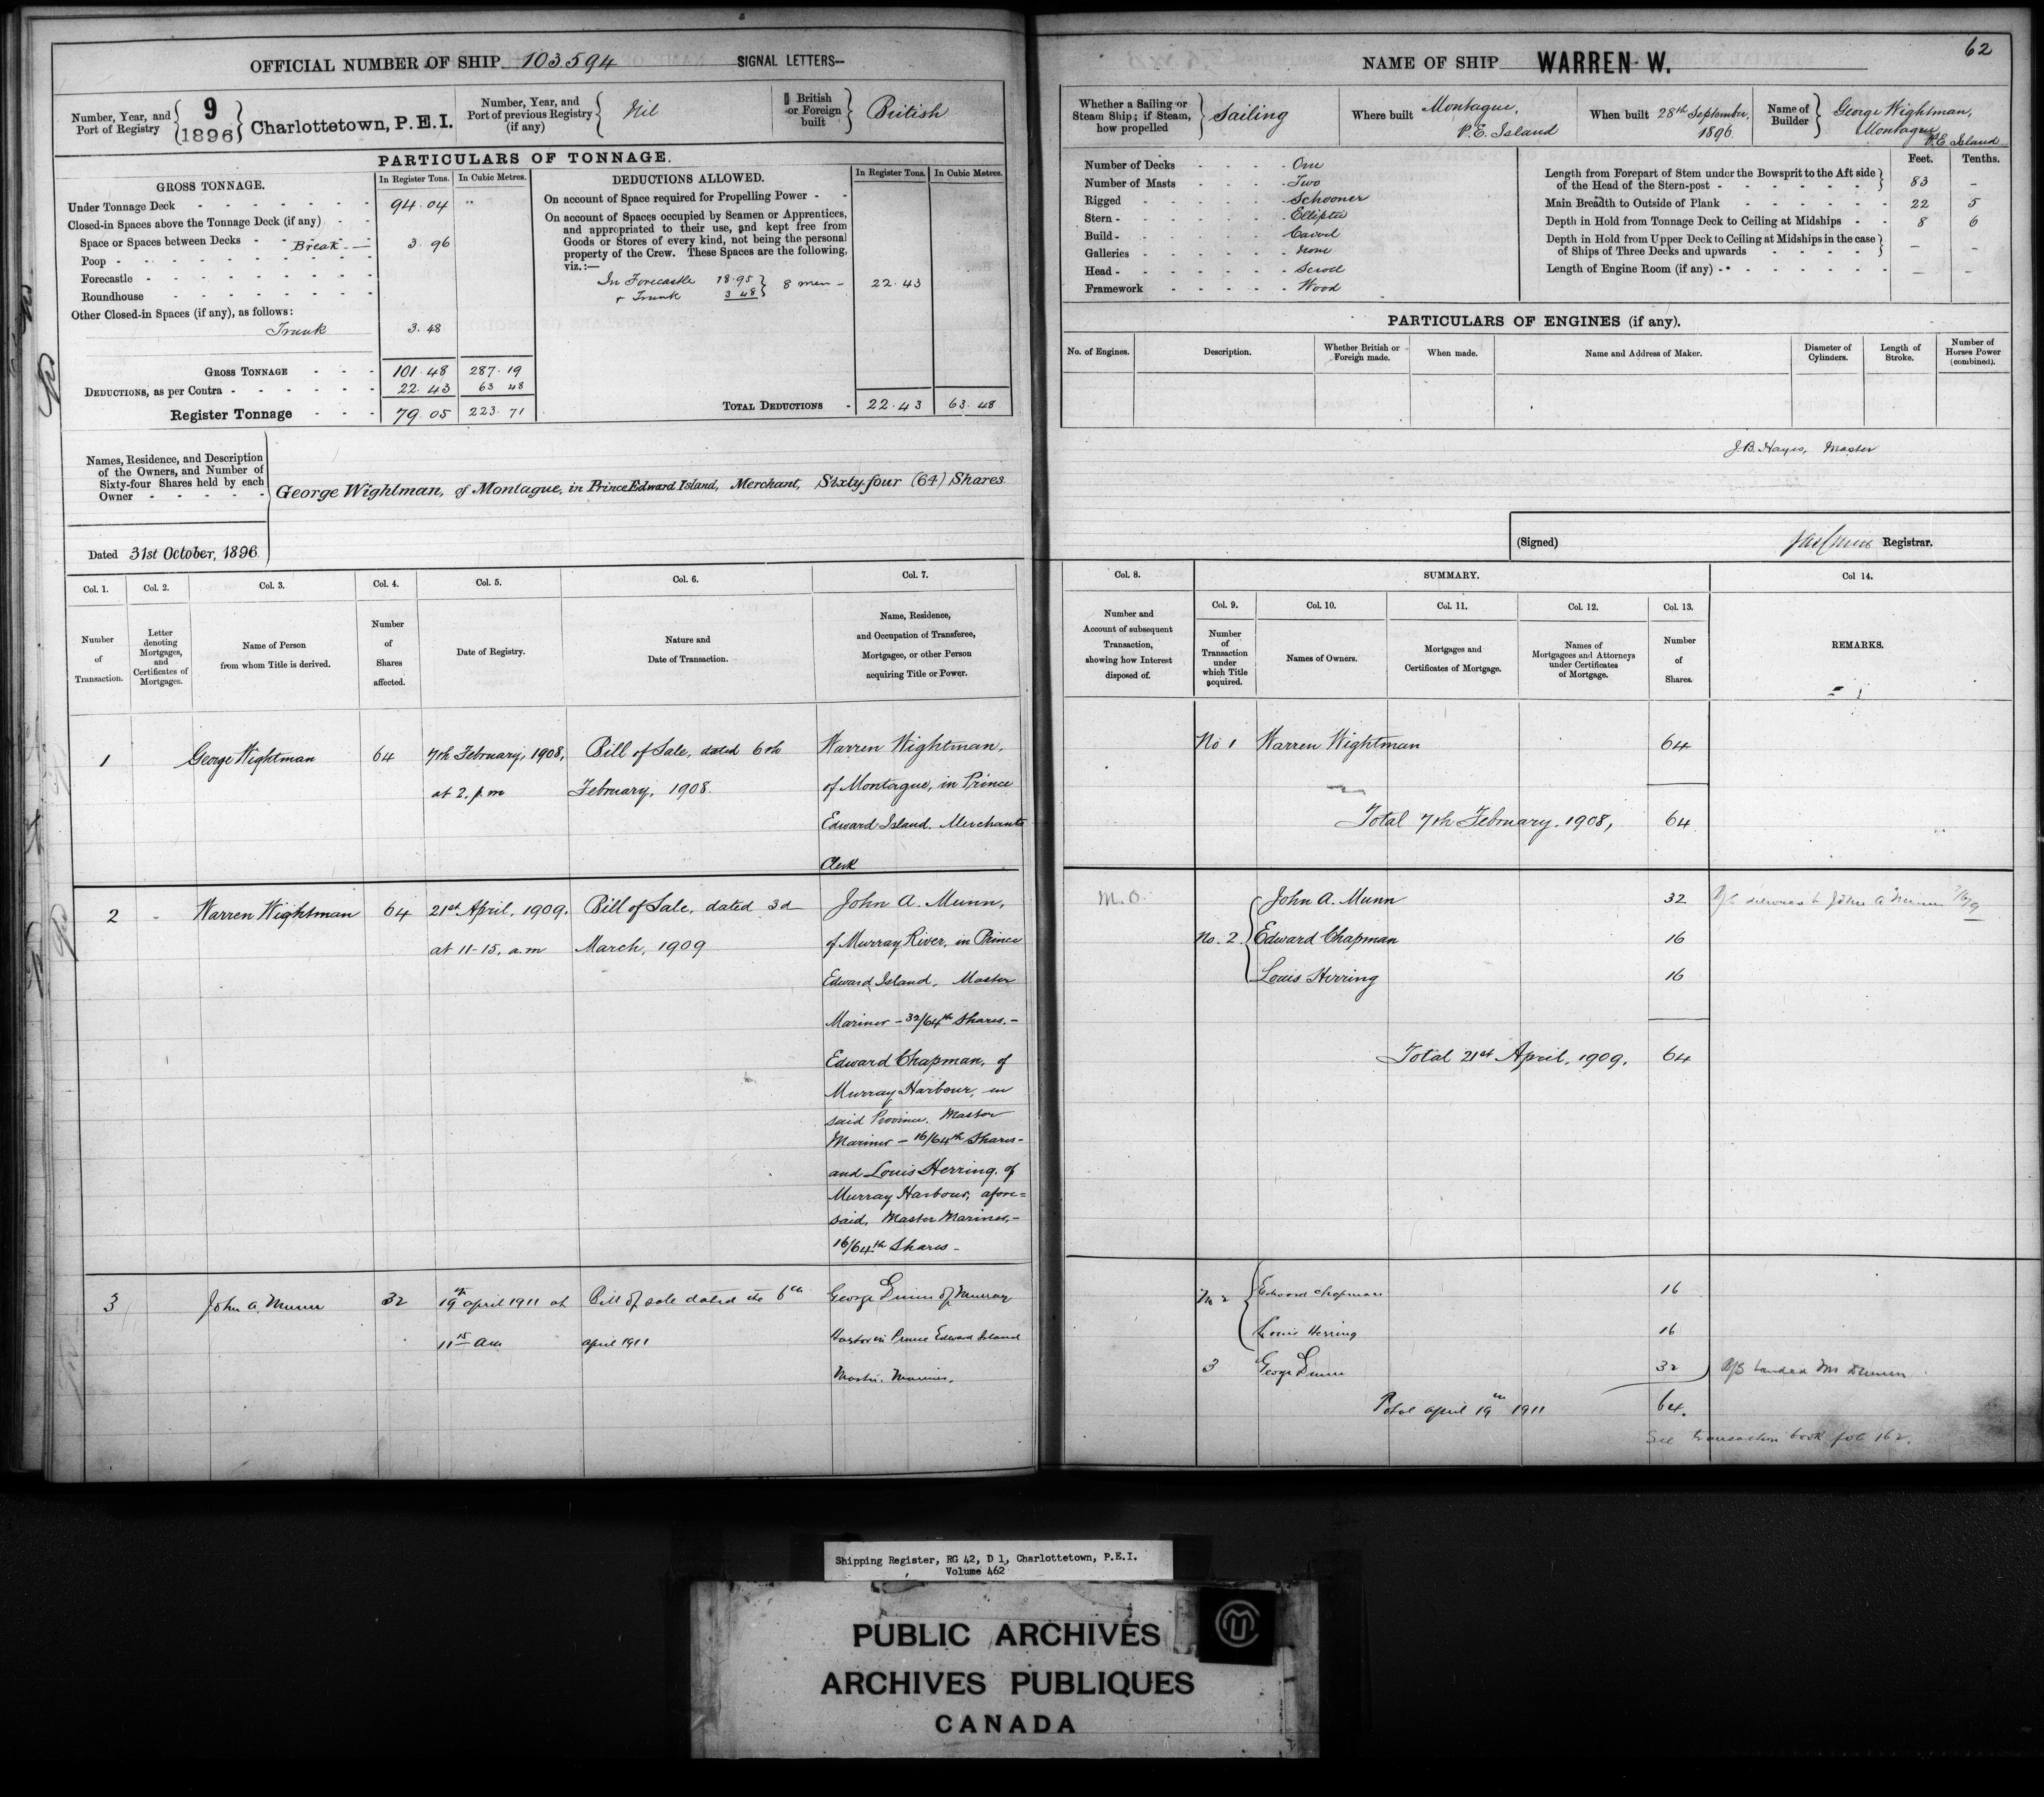 OFFICIAL NUMBER OF SHIP 103594 SIGNAL LETTERS—
Number, Year, and Port of Registry 9 1896 Charlottetown, P.E.I.
Number, Year, and Port of previous Registry (if any) Nil
British or Foreign built British
PARTICULARS OF TONNAGE.
GROSS TONNAGE. In Register Tons. In Cubic Metres.
Under Tonnage Deck 94.04 "
Closed-in Spaces above the Tonnage Deck (if any)
Space or Spaces between Decks Break 3.96
Poop
Forecastle
Roundhouse
Other Closed-in Spaces (if any), as follows:
Trunk 3.48
GROSS TONNAGE 101.48 287.19
DEDUCTIONS, as per Contra 22.43 63 48
Register Tonnage 79.05 223.71
DEDUCTIONS ALLOWED. In Register Tons. In Cubic Metres.
On account of Space required for Propelling Power
On account of Spaces occupied by Seamen or Apprentices,
and appropriated to their use, and kept free from
Goods or Stores of every kind, not being the personal
property of the Crew. These Spaces are the following,
viz.:—
In Forecastle 18.95
+ Trunk 3 48 } 8 men - 22.43
TOTAL DEDUCTIONS 22.43 63.48
Names, Residence, and Description
of the Owners, and Number of
Sixty-four Shares held by each
Owner
George Wightman, of Montague, in Prince Edward Island, Merchant, Sixty-four (64) Shares
Dated 31st October, 1896
Col. 1. Col. 2. Col. 3. Col. 4. Col. 5. Col. 6. Col. 7.
Number of Transaction.
Letter denoting Mortgages, and Certificates of Mortgages.
Name of Person from whom Title is derived.
Number of Shares affected.
Date of Registry.
Nature and Date of Transaction.
Name, Residence, and Occupation of Transferee, Mortgagee, or other Person acquiring Title or Power.
1 George Wightman 64 7th February, 1908, Bill of Sale, dated 6th Warren Wightman,
at 2. p.m February, 1908. of Montague, in Prince
Edward Island. Merchants
Clerk
2 - Warren Wightman 64 21st April, 1909. Bill of Sale, dated 3d John A. Munn,
at 11-15. a.m March, 1909 of Murray River, in Prince
Edward Island, Master
Mariner - 32/64th Shares.-
Edward Chapman, of
Murray Harbour, in
said Province. Master
Mariner - 16/64th Shares-
and Louis Herring, of
Murray Harbour, afore=
said, Master Mariner,-
16/64th Shares -
3 John A. Munn 32 19th april 1911 at Bill of sale dated the 6th George of Murray
11 15 am april 1911 Harbor in Prince Edward Island
Master Mariner.
62
NAME OF SHIP WARREN W.
Whether a Sailing or Steam Ship; if Steam, how propelled Sailing
Where built Montague, P.E. Island
When built 28th September, 1896
Name of Builder George Wightman, Montague, P.E. Island
Number of Decks One
Number of Masts Two
Rigged Schooner
Stern Elliptic
Build Carvel
Galleries None
Head Scroll
Framework Wood
Feet. Tenths.
Length from Forepart of Stem under the Bowsprit to the Aft side
of the Head of the Stern-post 83 -
Main Breadth to Outside of Plank 22 5
Depth in Hold from Tonnage Deck to Ceiling at Midships 8 6
Depth in Hold from Upper Deck to Ceiling at Midships in the case
of Ships of Three Decks and upwards - -
Length of Engine Room (if any) - -
PARTICULARS OF ENGINES (if any).
No. of Engines. Description. Whether British or Foreign made. When made. Name and Address of Maker. Diameter of Cylinders. Length of Stroke. Number of Horses Power (combined).
J.B. Hayes, Master
(Signed) Registrar.
Col. 8. SUMMARY. Col 14.
Col. 9. Col. 10. Col. 11. Col. 12. Col. 13.
Number and Account of subsequent Transaction, showing how Interest disposed of.
Number of Transaction under which Title acquired.
Names of Owners.
Mortgages and Certificates of Mortgage.
Names of Mortgagees and Attorneys under Certificates of Mortgage.
Number of Shares.
REMARKS.
No 1 Warren Wightman 64
Total 7th February, 1908, 64
M.O. John A. Munn 32 to John A Munn
No. 2 Edward Chapman 16
Louis Herring 16
Total 21st April, 1909, 64
No 2 Edward Chapman 16
Louis Herring 16
3 George 32 B/S handed Mr
Total april 19th 1911 64.
See transaction book fol 162.
Shipping Register, RG 42, D 1, Charlottetown, P.E.I.
Volume 462
PUBLIC ARCHIVES
ARCHIVES PUBLIQUES
CANADA